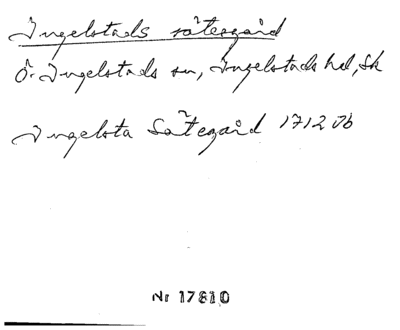 Ingelstads sätesgård
Ö. Ingelstads sn, Ingelstads hd, Sk
Ingelsta Sätegård 1712 Jb
Nr 17810